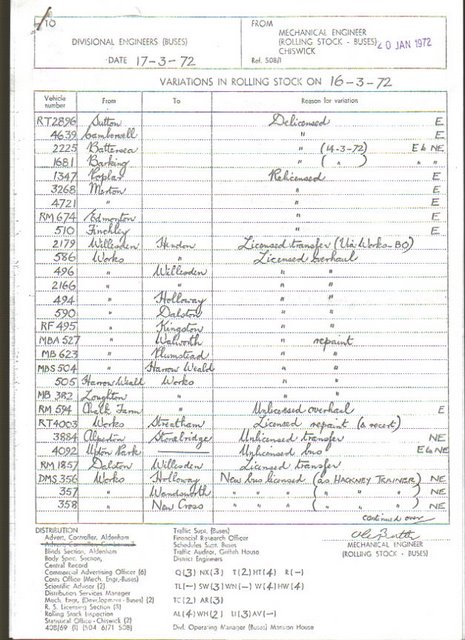 TO
FROM
DIVISIONAL ENGINEERS (BUSES)
MECHANICAL ENGINEER
(ROLLING STOCK - BUSES)
CHISWICK
20 JAN 1972
DATE 17-3-72
Ref. 508/1
VARIATIONS IN ROLLING STOCK ON 16-3-72
Vehicle number From To Reason for variation
RT2896 Sutton Delicensed E
4639 Camberwell " E
2225 Battersea " (14-3-72) E to NE
1681 Barking " ( " ) " "
1347 Poplar Relicensed E
3268 Merton " E
4721 " " E
RM 674 Edmonton " E
510 Finchley " E
2179 Willesden Hendon Licensed transfer (Via Works-BO)
586 Works " Licensed overhaul
496 " Willesden " "
2166 " " " "
494 " Holloway " "
590 " Dalston " "
RF 495 " Kingston " "
MBA 527 " Walworth " repaint
MB 623 " Plumstead " "
MBS 504 " Harrow Weald " "
505 Harrow Weald Works " "
MB 382 Loughton " " "
RM 594 Chalk Farm " Unlicensed overhaul E
RT4003 Works Streatham Licensed repaint (a recert)
3884 Alperton Stonebridge Unlicensed transfer NE
4092 Upton Park Unlicensed bus E to NE
RM 1857 Dalston Willesden Licensed transfer
DMS 356 Works Holloway New bus licensed (as HACKNEY TRAINER) NE
357 " Wandsworth " " " ( " " " ) NE
358 " New Cross " " " ( " " " ) NE
continued over
DISTRIBUTION
Advert. Controller, Aldenham
Blinds Section, Aldenham
Body Spec. Section,
Central Record
Commercial Advertising Officer (6)
Costs Office (Mech. Engr.-Buses)
Scientific Adviser (2)
Distribution Services Manager
Mech. Engr. (Development - Buses) (2)
R. S. Licensing Section (3)
Rolling Stock Inspection
Statistical Office - Chiswick (2)
408/69 (1) (504 6/71 508)
Traffic Supt. (Buses)
Financial Research Officer
Schedules Supt. Buses
Traffic Auditor, Griffith House
District Engineers
Q(3) NX(3) T(2) HT(4) R(-)
TL(-) SW(3) WN(-) W(4) HW(4)
TC(2) AR(3)
AL(4) WH(2) U(3) AV(-)
Divl. Operating Manager (Buses) Mansion House
MECHANICAL ENGINEER
(ROLLING STOCK - BUSES)